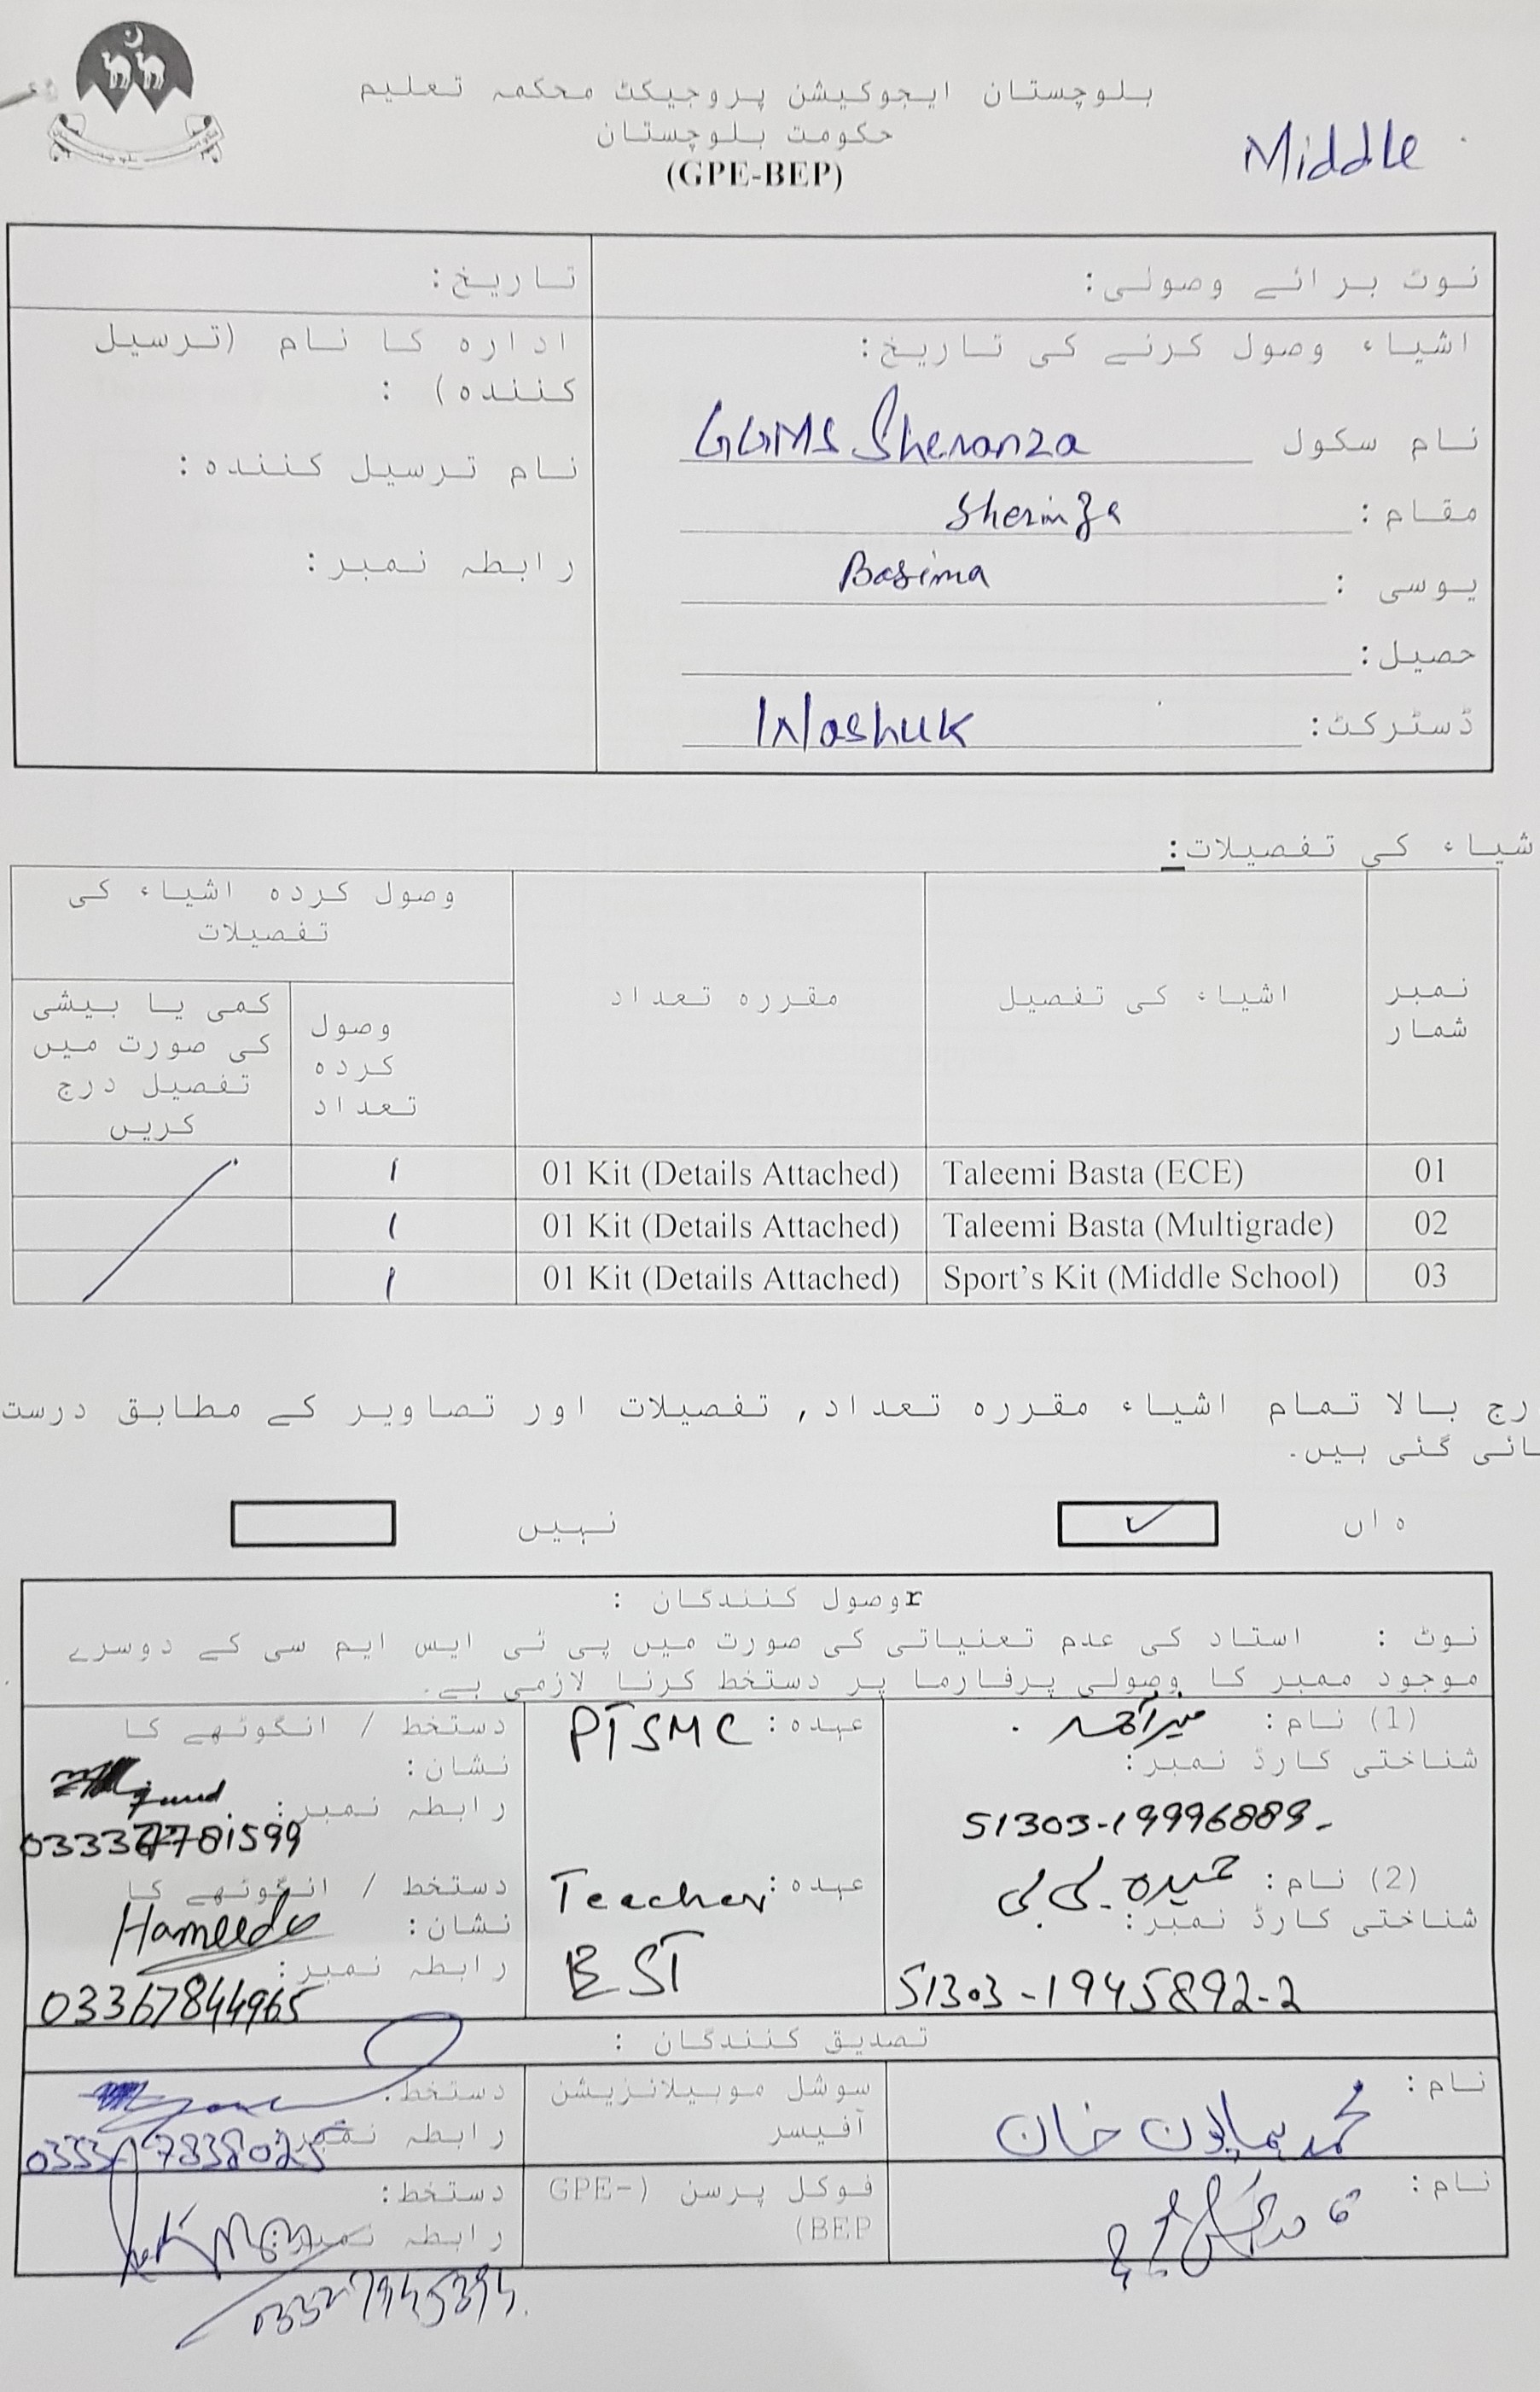 بلوچستان ایجوکیشن پروجیکٹ محکمہ تعلیم
حکومت بلوچستان
(GPE-BEP)
Middle
نوٹ برائے وصولی:
تاریخ:
اشیاء وصول کرنے کی تاریخ:
نام سکول GGMS Sheranza
مقام: Sherinza
یوسی : Basima
حصیل:
ڈسٹرکٹ: Washuk
ادارہ کا نام (ترسیل
کنندہ) :
نام ترسیل کنندہ:
رابطہ نمبر:
شیاء کی تفصیلات:
نمبر شمار
اشیاء کی تفصیل
مقررہ تعداد
وصول کردہ اشیاء کی تفصیلات
وصول کردہ تعداد
کمی یا بیشی کی صورت میں تفصیل درج کریں
01 Taleemi Basta (ECE) 01 Kit (Details Attached) 1
02 Taleemi Basta (Multigrade) 01 Kit (Details Attached) 1
03 Sport's Kit (Middle School) 01 Kit (Details Attached) 1
رج بالا تمام اشیاء مقررہ تعداد, تفصیلات اور تصاویر کے مطابق درست
ائی گئی ہیں.
ہاں ✓
نہیں
rوصول کنندگان :
نوٹ : استاد کی عدم تعنیاتی کی صورت میں پی ٹی ایس ایم سی کے دوسرے
موجود ممبر کا وصولی پرفارما پر دستخط کرنا لازمی ہے.
(1) نام:
شناختی کارڈ نمبر:
51303-19996889-
عہدہ: PTSMC
دستخط / انگوٹھے کا
نشان:
رابطہ نمبر:
(2) نام: حمیدہ بی بی
شناختی کارڈ نمبر:
51303-1945892-2
عہدہ: Teacher
EST
دستخط / انگوٹھے کا
نشان: Hameeda
رابطہ نمبر:
03367844965
تصدیق کنندگان :
نام: محمد ہمایون خان
سوشل موبیلائزیشن
آفیسر
دستخط:
رابطہ نمبر:
نام:
فوکل پرسن (GPE-
BEP)
دستخط:
رابطہ نمبر
03327945394.